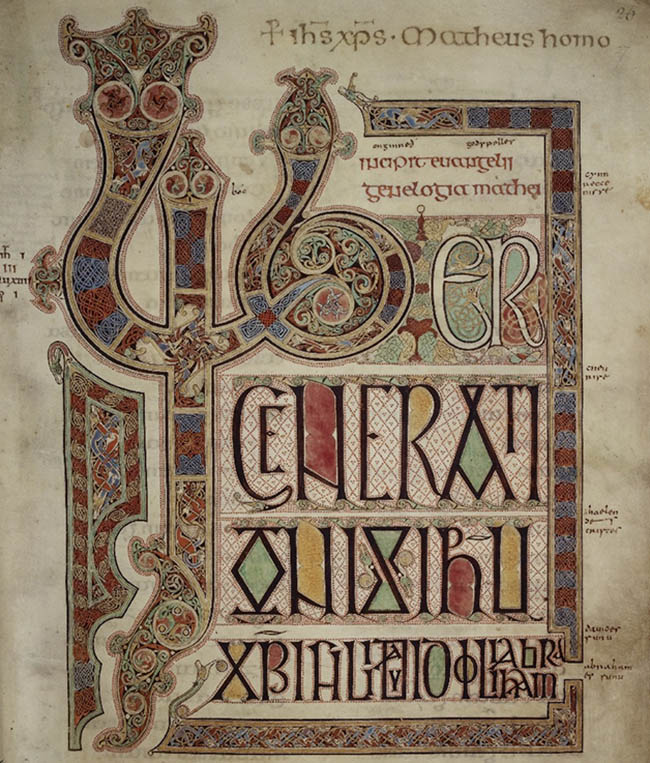 + ihs xps · Matheus homo
incipit euangelii
genelogia mathei
LIBER
GENERATI
ONIS IHU
XPI FILII DAVID FILII ABRAHAM
boc